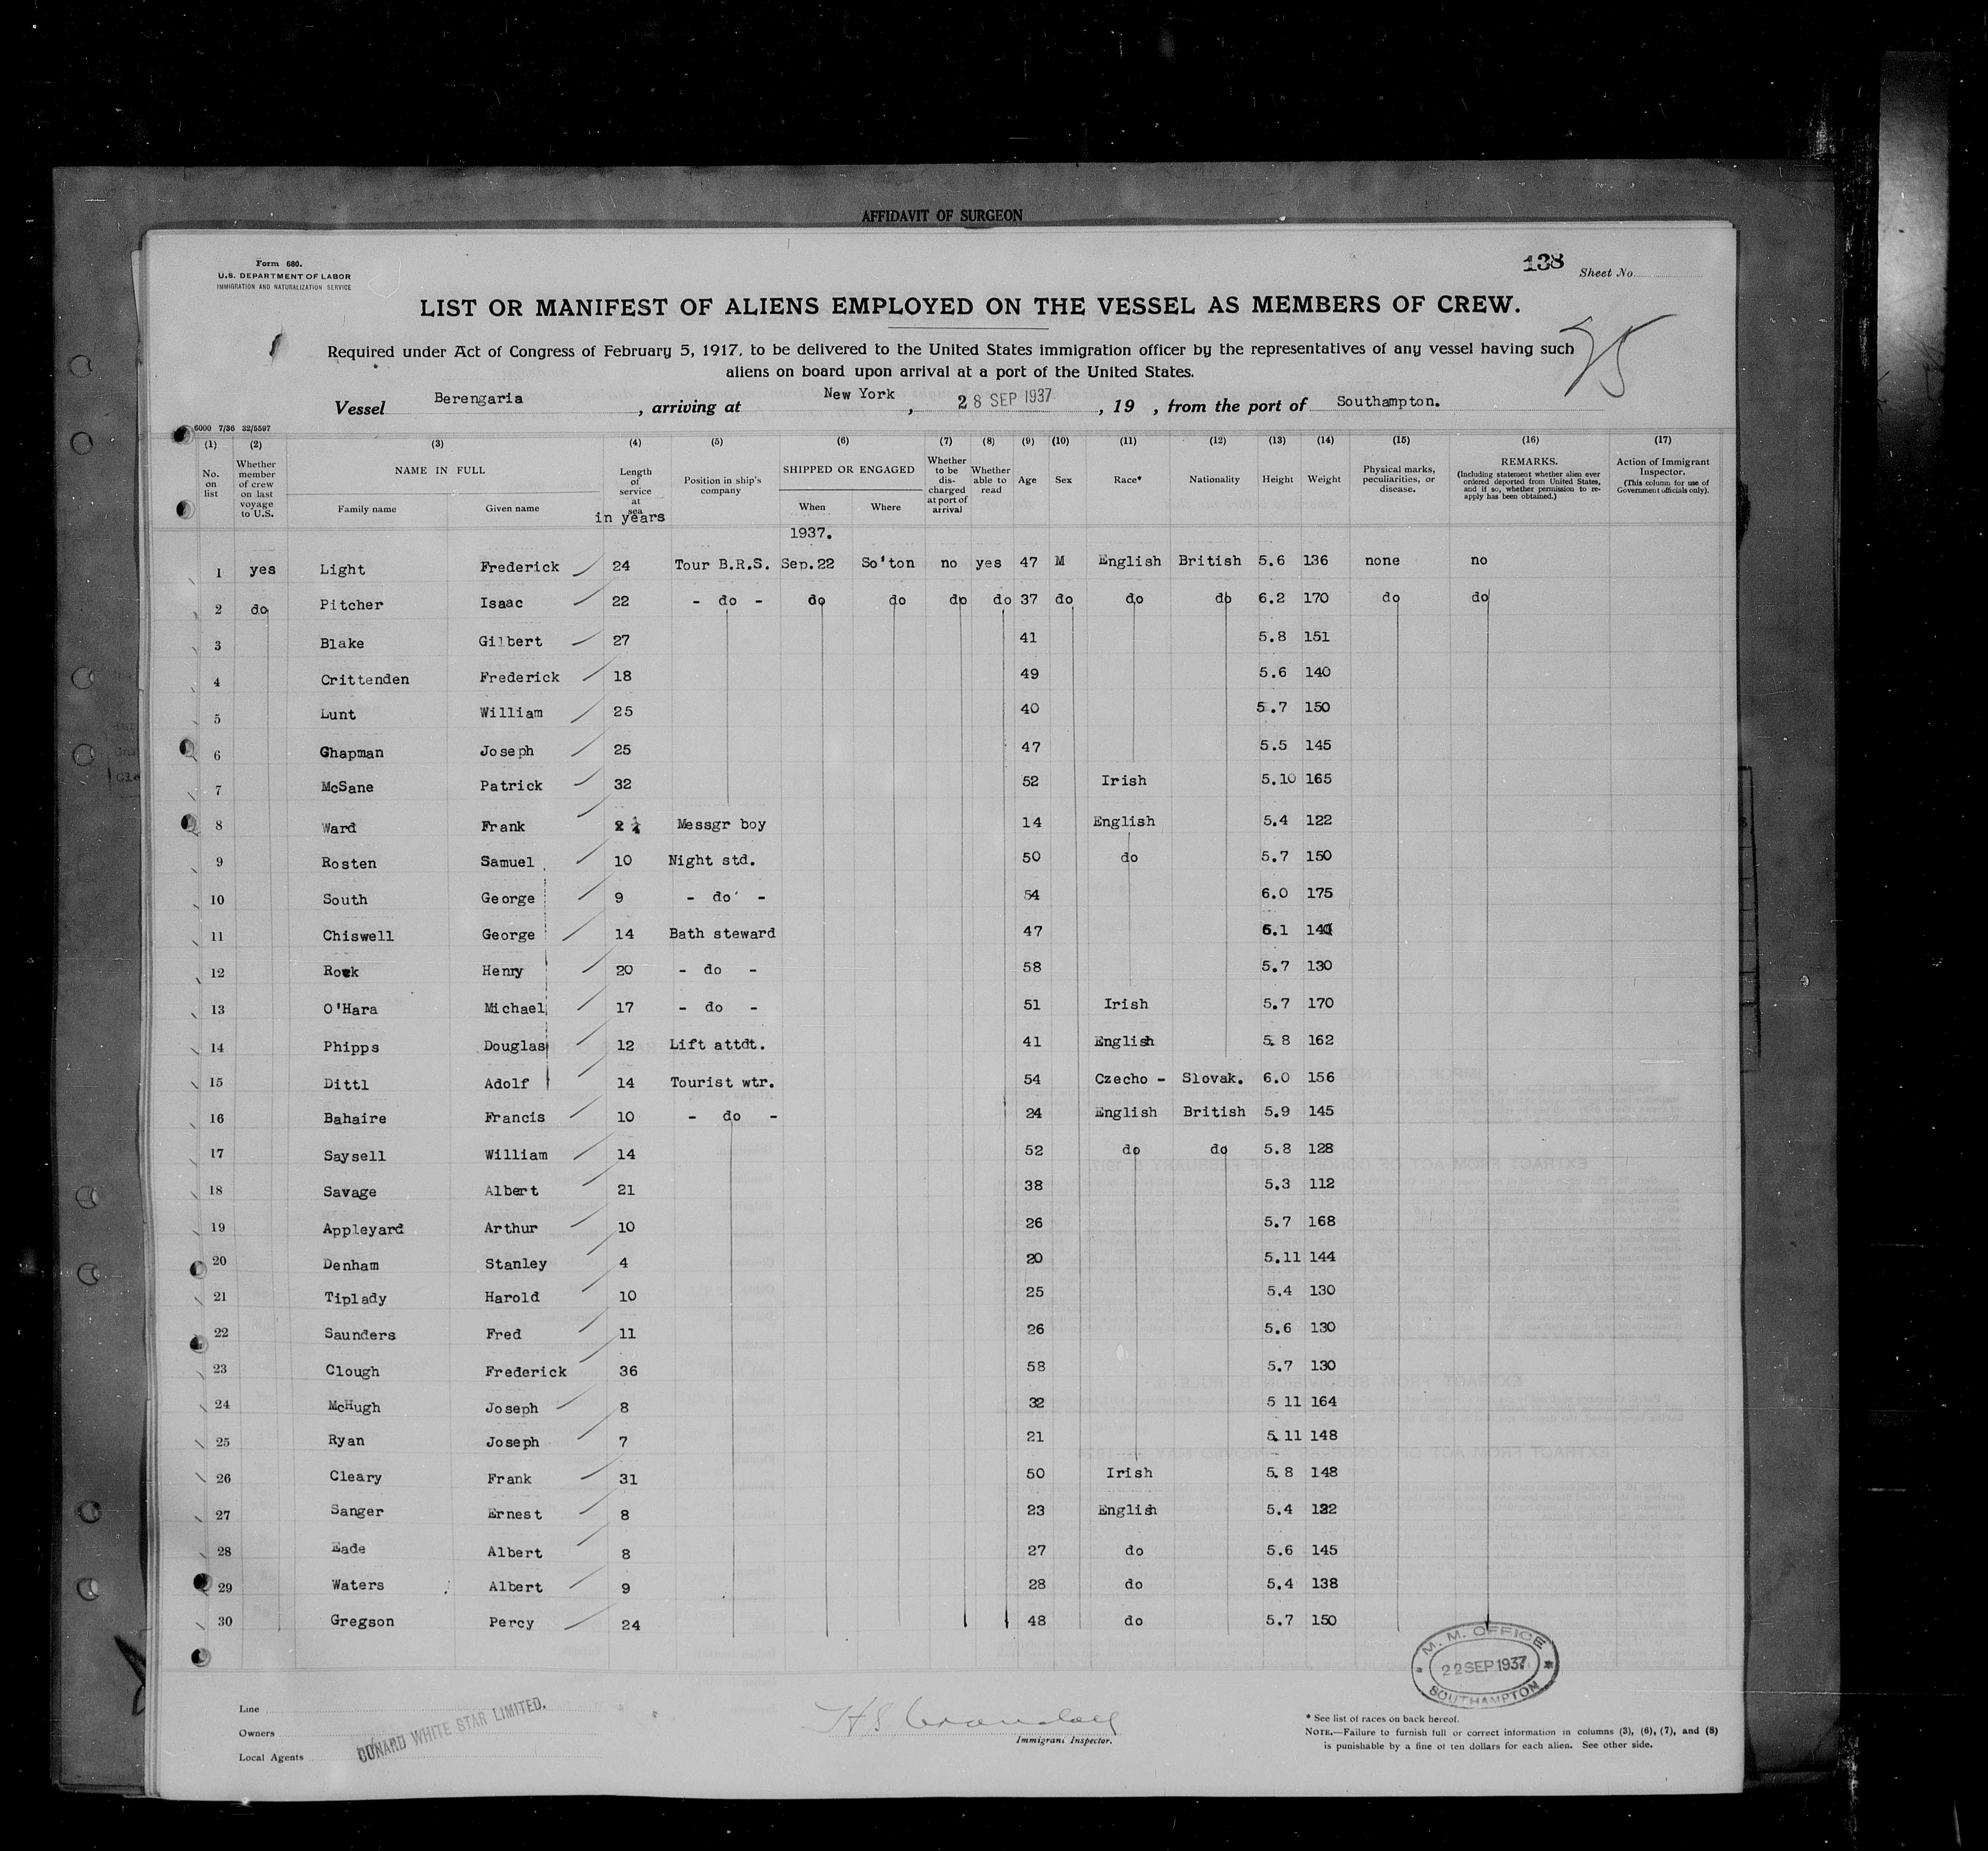 AFFIDAVIT OF SURGEON
Form 680.
U.S. DEPARTMENT OF LABOR
IMMIGRATION AND NATURALIZATION SERVICE
138 Sheet No.
LIST OR MANIFEST OF ALIENS EMPLOYED ON THE VESSEL AS MEMBERS OF CREW.
Required under Act of Congress of February 5, 1917, to be delivered to the United States immigration officer by the representatives of any vessel having such
aliens on board upon arrival at a port of the United States.
Vessel Berengaria, arriving at New York, 28 SEP 1937, 19 , from the port of Southampton.
6000 7/36 32/5597
(1) (2) (3) (4) (5) (6) (7) (8) (9) (10) (11) (12) (13) (14) (15) (16) (17)
No. on list
Whether member of crew on last voyage to U.S.
NAME IN FULL
Family name Given name
Length of service at sea in years
Position in ship's company
SHIPPED OR ENGAGED
When Where
Whether to be discharged at port of arrival
Whether able to read
Age Sex Race* Nationality Height Weight
Physical marks, peculiarities, or disease.
REMARKS.
(Including statement whether alien ever ordered deported from United States, and if so, whether permission to reapply has been obtained.)
Action of Immigrant Inspector.
(This column for use of Government officials only).
1937.
1 yes Light Frederick 24 Tour B.R.S. Sep.22 So'ton no yes 47 M English British 5.6 136 none no
2 do Pitcher Isaac 22 - do - do do do do 37 do do do 6.2 170 do do
3 Blake Gilbert 27 41 5.8 151
4 Crittenden Frederick 18 49 5.6 140
5 Lunt William 25 40 5.7 150
6 Chapman Joseph 25 47 5.5 145
7 McSane Patrick 32 52 Irish 5.10 165
8 Ward Frank Messgr boy 14 English 5.4 122
9 Rosten Samuel 10 Night std. 50 do 5.7 150
10 South George 9 - do - 54 6.0 175
11 Chiswell George 14 Bath steward 47 6.1 140
12 Henry 20 - do - 58 5.7 130
13 O'Hara Michael 17 - do - 51 Irish 5.7 170
14 Phipps Douglas 12 Lift attdt. 41 English 5.8 162
15 Dittl Adolf 14 Tourist wtr. 54 Czecho - Slovak. 6.0 156
16 Bahaire Francis 10 - do - 24 English British 5.9 145
17 Saysell William 14 52 do do 5.8 128
18 Savage Albert 21 38 5.3 112
19 Appleyard Arthur 10 26 5.7 168
20 Denham Stanley 4 20 5.11 144
21 Tiplady Harold 10 25 5.4 130
22 Saunders Fred 11 26 5.6 130
23 Clough Frederick 36 58 5.7 130
24 McHugh Joseph 8 32 5 11 164
25 Ryan Joseph 7 21 5.11 148
26 Cleary Frank 31 50 Irish 5.8 148
27 Sanger Ernest 8 23 English 5.4
28 Eade Albert 8 27 do 5.6 145
29 Waters Albert 9 28 do 5.4 138
30 Gregson Percy 24 48 do 5.7 150
M. M. OFFICE
22 SEP 1937
SOUTHAMPTON
Line
Owners
Local Agents
CUNARD WHITE STAR LIMITED.
Immigrant Inspector.
* See list of races on back hereof.
NOTE.—Failure to furnish full or correct information in columns (3), (6), (7), and (8)
is punishable by a fine of ten dollars for each alien. See other side.